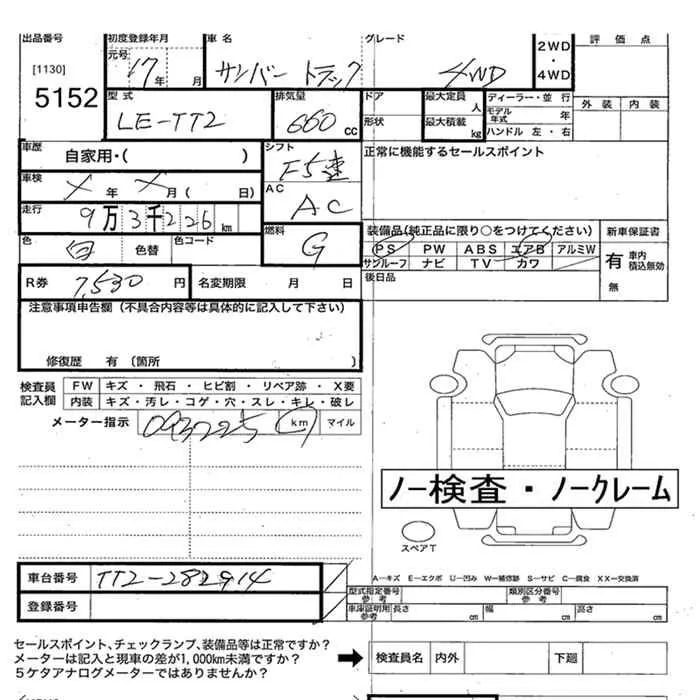 出品番号 初度登録年月 車名 グレード 評価点
元号
[1130] 17年 月 サンバー トラック 4WD 2WD・4WD
5152
型式 排気量 ドア 最大定員 人 ディーラー・並行 外装 内装
LE-TT2 660cc 形状 最大積載 kg モデル年式 年
ハンドル 左・右
車歴 シフト 正常に機能するセールスポイント
自家用・( ) F5速
車検 AC
X年 X月( 日) AC
走行 9万3千226km 燃料 装備品(純正品に限り○をつけてください) 新車保証書
色 白 色替 色コード G PS PW ABS エアB アルミW 有 車内積込無効
サンルーフ ナビ TV カワ
R券 7,530円 名変期限 月 日 後日品 無
注意事項申告欄(不具合内容等は具体的に記入して下さい)
修復歴 有(箇所 )
検査員記入欄 FW キズ・飛石・ヒビ割・リペア跡・X要
内装 キズ・汚レ・コゲ・穴・スレ・キレ・破レ
メーター指示 093225 km マイル
ノー検査・ノークレーム
スペアT
車台番号 TT2-282914
A−キズ E−エクボ U−凹み W−補修跡 S−サビ C−腐食 XX−交換済
型式指定番号参考 類別区分番号参考
登録番号 車庫証明用参考 長さ 幅 高さ
セールスポイント、チェックランプ、装備品等は正常ですか?
メーターは記入と現車の差が1,000km未満ですか?
5ケタアナログメーターではありませんか?
検査員名 内外 下廻